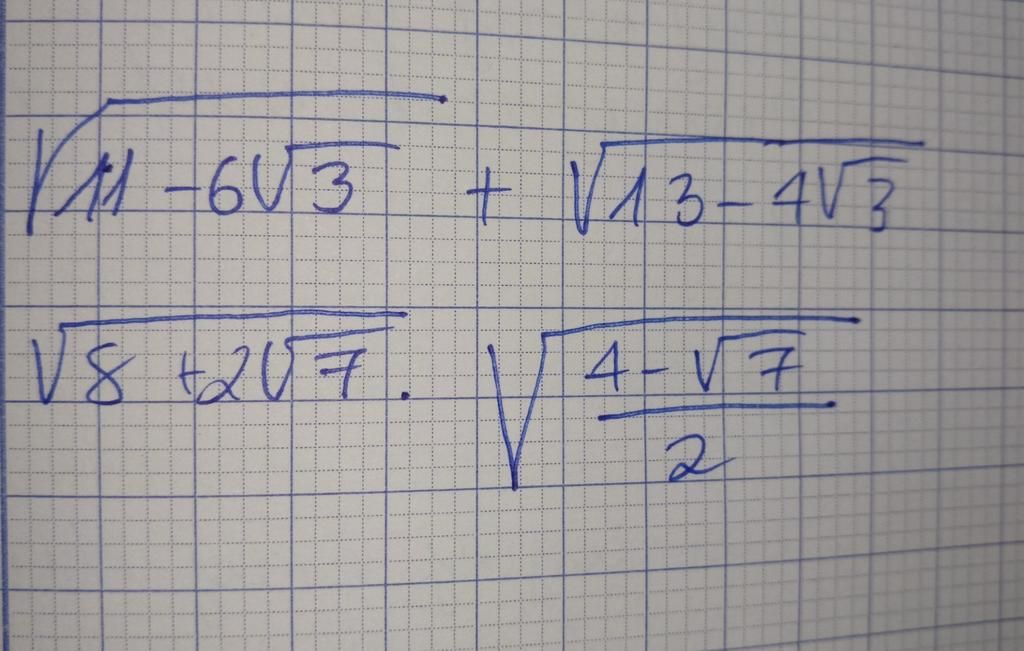 √(11 - 6√3) + √(13 - 4√3)
√(8 + 2√7) . √((4 - √7)/2)